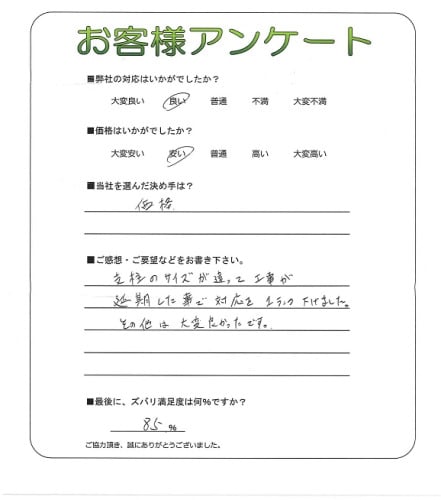 お客様アンケート
■弊社の対応はいかがでしたか？
大変良い 良い 普通 不満 大変不満
■価格はいかがでしたか？
大変安い 安い 普通 高い 大変高い
■当社を選んだ決め手は？
価格
■ご感想・ご要望などをお書き下さい。
支柱のサイズが違って工事が
延期した事で対応を1ランク下げました。
その他は大変良かったです。
■最後に、ズバリ満足度は何%ですか？
85 %
ご協力頂き、誠にありがとうございました。